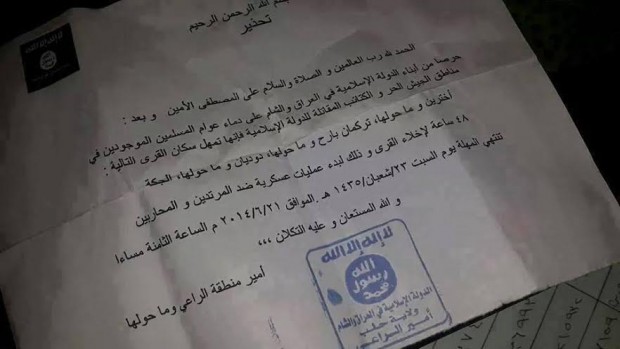 بسم الله الرحمن الرحيم
تحذير
الحمد لله رب العالمين و الصلاة والسلام على المصطفى الأمين و بعد :
حرصا من أبناء الدولة الإسلامية في العراق والشام على دماء عوام المسلمين الموجودين في
مناطق الجيش الحر و الكتائب المقاتلة للدولة الإسلامية فإنها تمهل سكان القرى التالية :
أخترين و ما حولها، تركمان بارح و ما حولها، دوديان و ما حولها، الجكة
٤٨ ساعة لإخلاء القرى و ذلك لبدء عمليات عسكرية ضد المرتدين و المحاربين
تنتهي المهلة يوم السبت ٢٣/شعبان/١٤٣٥ هـ .الموافق ٢٠١٤/٦/٢١ م الساعة الثامنة مساءا
و الله المستعان و عليه التكلان ،،،
أمير منطقة الراعي وما حولها
لا إله إلا الله
الله
رسول
محمد
الدولة الإسلامية في العراق والشام
ولاية حلب
أمير الراعي